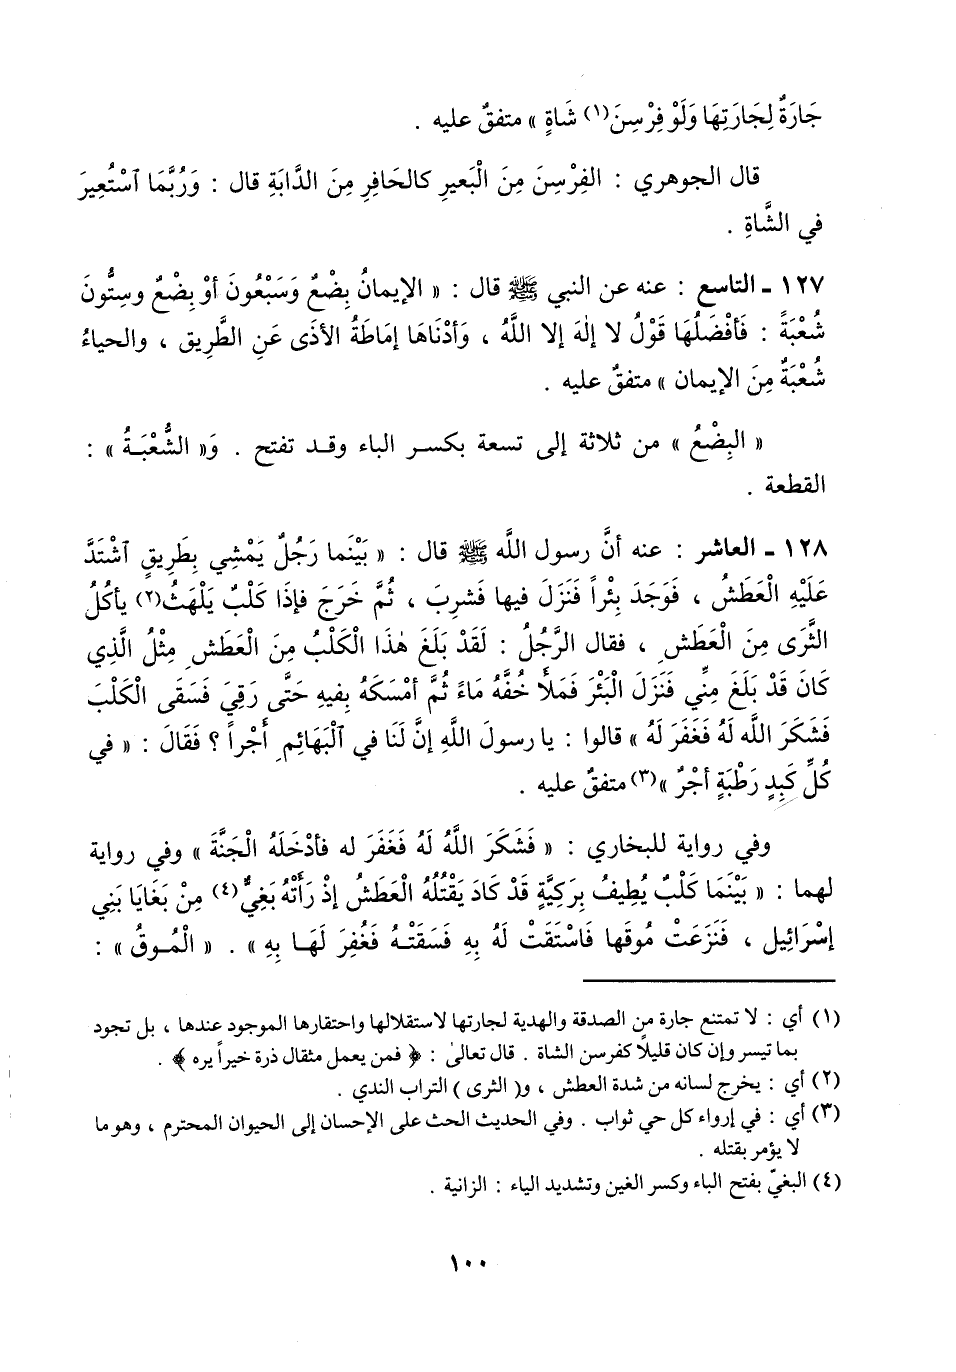 جَارَةٌ لِجَارَتِهَا وَلَوْ فِرْسِنَ(١) شَاةٍ » متفقٌ عليه .
قال الجوهري : الفِرْسِنَ مِنَ الْبَعيرِ كالحَافِرِ مِنَ الدَّابَةِ قال : وَرُبَّمَا ٱسْتُعِيرَ
في الشَّاةِ .
١٢٧ - التاسع : عنه عن النبي ﷺ قال : « الإيمانُ بِضْعٌ وَسَبْعُونَ أوْ بِضْعٌ وسِتُّونَ
شُعْبَةً : فَأفْضَلُهَا قَوْلُ لا إلٰهَ إلا اللَّهُ ، وَأدْنَاهَا إمَاطَةُ الأذَى عَنِ الطَّرِيق ، والحياءُ
شُعْبَةٌ مِنَ الإيمان » متفقٌ عليه .
« البِضْعُ » من ثلاثة إلى تسعة بكسر الباء وقد تفتح . وَ« الشُّعْبَةُ » :
القطعة .
١٢٨ - العاشر : عنه أنَّ رسول اللَّه ﷺ قال : « بَيْنَما رَجُلٌ يَمْشِي بِطَرِيقٍ ٱشْتَدَّ
عَلَيْهِ الْعَطَشُ ، فَوَجَدَ بِئْراً فَنَزَلَ فيها فَشرِبَ ، ثُمَّ خَرَجَ فإذَا كَلْبٌ يَلْهَثُ(٢) يأكُلُ
الثَّرَى مِنَ الْعَطَشِ ، فقال الرَّجُلُ : لَقَدْ بَلَغَ هٰذَا الْكَلْبُ مِنَ الْعَطَشِ مِثْلُ الَّذِي
كَانَ قَدْ بَلَغَ مِنِّي فَنَزَلَ الْبِئْرَ فَمَلأَ خُفَّهُ مَاءً ثُمَّ أمْسَكَهُ بِفيهِ حَتَّى رَقِيَ فَسَقَى الْكَلْبَ
فَشَكَرَ اللَّه لَهُ فَغَفَرَ لَهُ » قالوا : يا رسولَ اللَّهِ إنَّ لَنَا في ٱلْبَهَائِمِ أَجْراً ؟ فَقَالَ : « في
كُلِّ كَبِدٍ رَطْبَةٍ أجْرٌ »(٣) متفقٌ عليه .
وفي رواية للبخاري : « فَشَكَرَ اللَّهُ لَهُ فَغَفَرَ له فأدْخَلَهُ الْجَنَّةَ » وفي رواية
لهما : « بَيْنَمَا كَلْبٌ يُطِيفُ بِرَكِيَّةٍ قَدْ كَادَ يَقْتُلُهُ الْعَطَشُ إذْ رَأَتْهُ بَغِيٌّ(٤) مِنْ بَغَايَا بَنِي
إسْرَائِيل ، فَنَزَعَتْ مُوقَها فَاسْتَقَتْ لَهُ بِهِ فَسَقَتْهُ فَغُفِرَ لَهَا بِهِ » . « الْمُوقُ » :
(١) أي : لا تمتنع جارة من الصدقة والهدية لجارتها لاستقلالها واحتقارها الموجود عندها ، بل تجود
بما تيسر وإن كان قليلاً كفرسن الشاة . قال تعالىٰ : ﴿ فمن يعمل مثقال ذرة خيراً يره ﴾ .
(٢) أي : يخرج لسانه من شدة العطش ، و( الثرى ) التراب الندي .
(٣) أي : في إرواء كل حي ثواب . وفي الحديث الحث على الإحسان إلى الحيوان المحترم ، وهو ما
لا يؤمر بقتله .
(٤) البغيّ بفتح الباء وكسر الغين وتشديد الياء : الزانية .
١٠٠